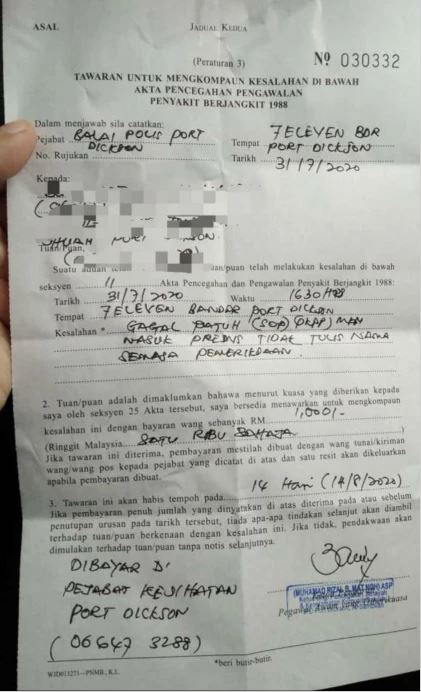 ASAL
JADUAL KEDUA
(Peraturan 3)
Nº 030332
TAWARAN UNTUK MENGKOMPAUN KESALAHAN DI BAWAH
AKTA PENCEGAHAN PENGAWALAN
PENYAKIT BERJANGKIT 1988
Dalam menjawab sila catatkan:
Pejabat BALAI POLIS PORT
DICKSON
No. Rujukan
Tempat 7ELEVEN BDR
PORT DICKSON
Tarikh 31/7/2020
Kepada:
Tuan/Puan,
Suatu aduan telah tuan/puan telah melakukan kesalahan di bawah
seksyen 11 Akta Pencegahan dan Pengawalan Penyakit Berjangkit 1988:
Tarikh 31/7/2020 Waktu 1630 HRS
Tempat 7ELEVEN BANDAR PORT DICKSON
Kesalahan * GAGAL PATUH (SOP) (PKPP) MAN
MASUK PREMIS TIDAK TULIS NAMA
SEMASA PEMERIKSAAN.
2. Tuan/puan adalah dimaklumkan bahawa menurut kuasa yang diberikan kepada
saya oleh seksyen 25 Akta tersebut, saya bersedia menawarkan untuk mengkompaun
kesalahan ini dengan bayaran wang sebanyak RM 1,000/-
(Ringgit Malaysia SATU RIBU SAHAJA )
Jika tawaran ini diterima, pembayaran mestilah dibuat dengan wang tunai/kiriman
wang/wang pos kepada pejabat yang dicatat di atas dan satu resit akan dikeluarkan
apabila pembayaran dibuat.
3. Tawaran ini akan habis tempoh pada 14 Hari (14/8/2020)
Jika pembayaran penuh jumlah yang dinyatakan di atas diterima pada atau sebelum
penutupan urusan pada tarikh tersebut, tiada apa-apa tindakan selanjut akan diambil
terhadap tuan/puan berkenaan dengan kesalahan ini. Jika tidak, pendakwaan akan
dimulakan terhadap tuan/puan tanpa notis selanjutnya.
DIBAYAR DI
PEJABAT KESIHATAN
PORT DICKSON
(06 647 3288)
(MUHAMAD RIZAL B. MAT NOH) ASP
*beri butir-butir.
WJD013271—PNMB., K.L.